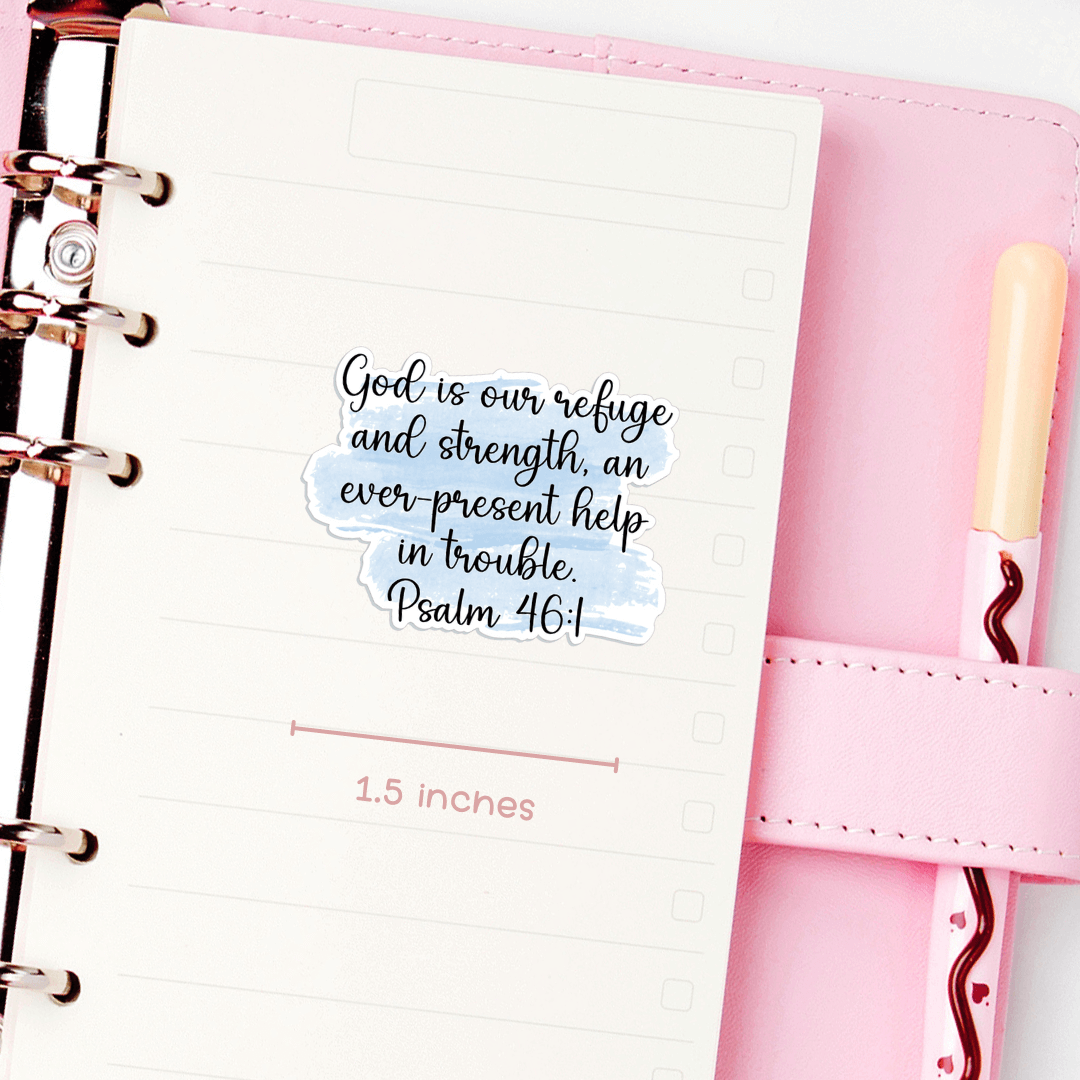 God is our refuge
and strength, an
ever-present help
in trouble.
Psalm 46:1
1.5 inches